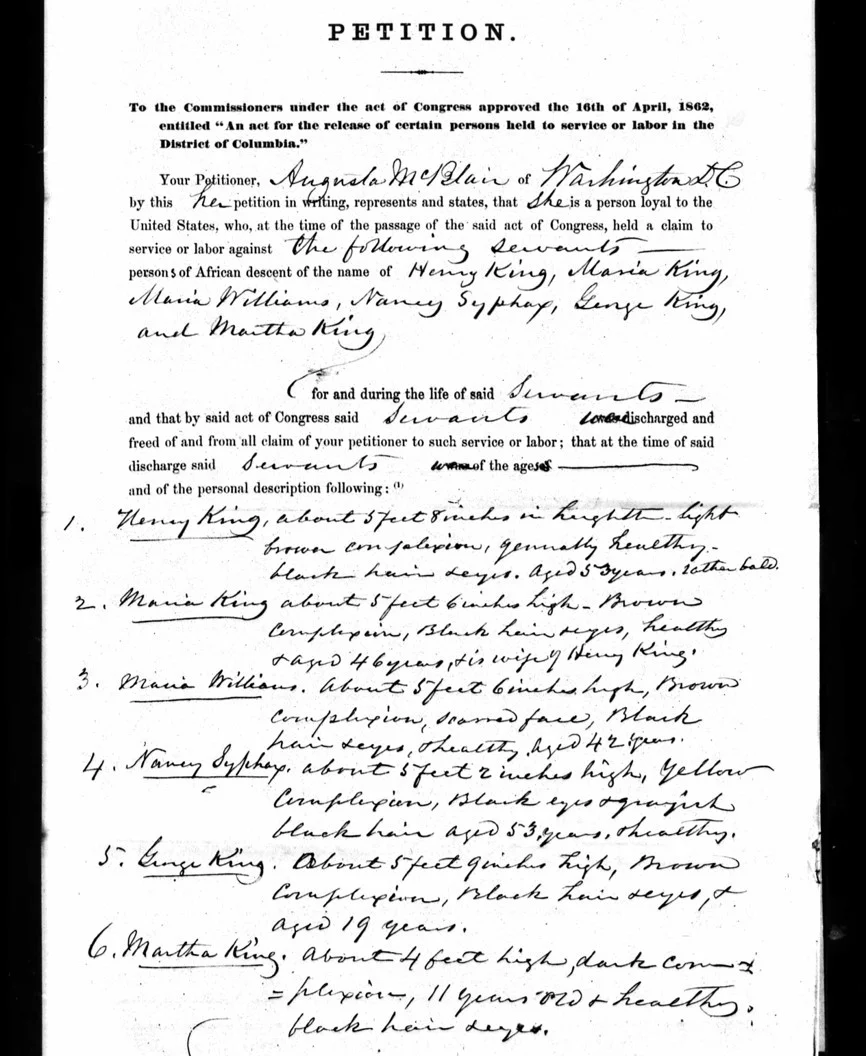 PETITION.
To the Commissioners under the act of Congress approved the 16th of April, 1862,
entitled "An act for the release of certain persons held to service or labor in the
District of Columbia."
Your Petitioner, Augusta McBlair of Washington D.C
by this her petition in writing, represents and states, that she is a person loyal to the
United States, who, at the time of the passage of the said act of Congress, held a claim to
service or labor against the following servants
persons of African descent of the name of Henry King, Maria King,
Maria Williams, Nancy Syphax, George King,
and Martha King
for and during the life of said Servants
and that by said act of Congress said Servants discharged and
freed of and from all claim of your petitioner to such service or labor; that at the time of said
discharge said Servants of the ages
and of the personal description following: (1)
1. Henry King, about 5 feet 8 inches in heighth - light
brown complexion, generally healthy -
black hair & eyes. Aged 53 years. rather bald.
2. Maria King about 5 feet 6 inches high - Brown
complexion, Black hair & eyes, healthy
& aged 46 years, & is wife of Henry King.
3. Maria Williams. About 5 feet 6 inches high, Brown
complexion, scarred face, Black
hair & eyes, & healthy. Aged 42 years.
4. Nancy Syphax. about 5 feet 2 inches high, Yellow
Complexion, Black eyes & grayish
black hair aged 53 years, & healthy.
5. George King. About 5 feet 9 inches high, Brown
Complexion, Black hair & eyes, &
aged 19 years.
6. Martha King. About 4 feet high, dark com-
=plexion, 11 years old & healthy.
black hair & eyes.